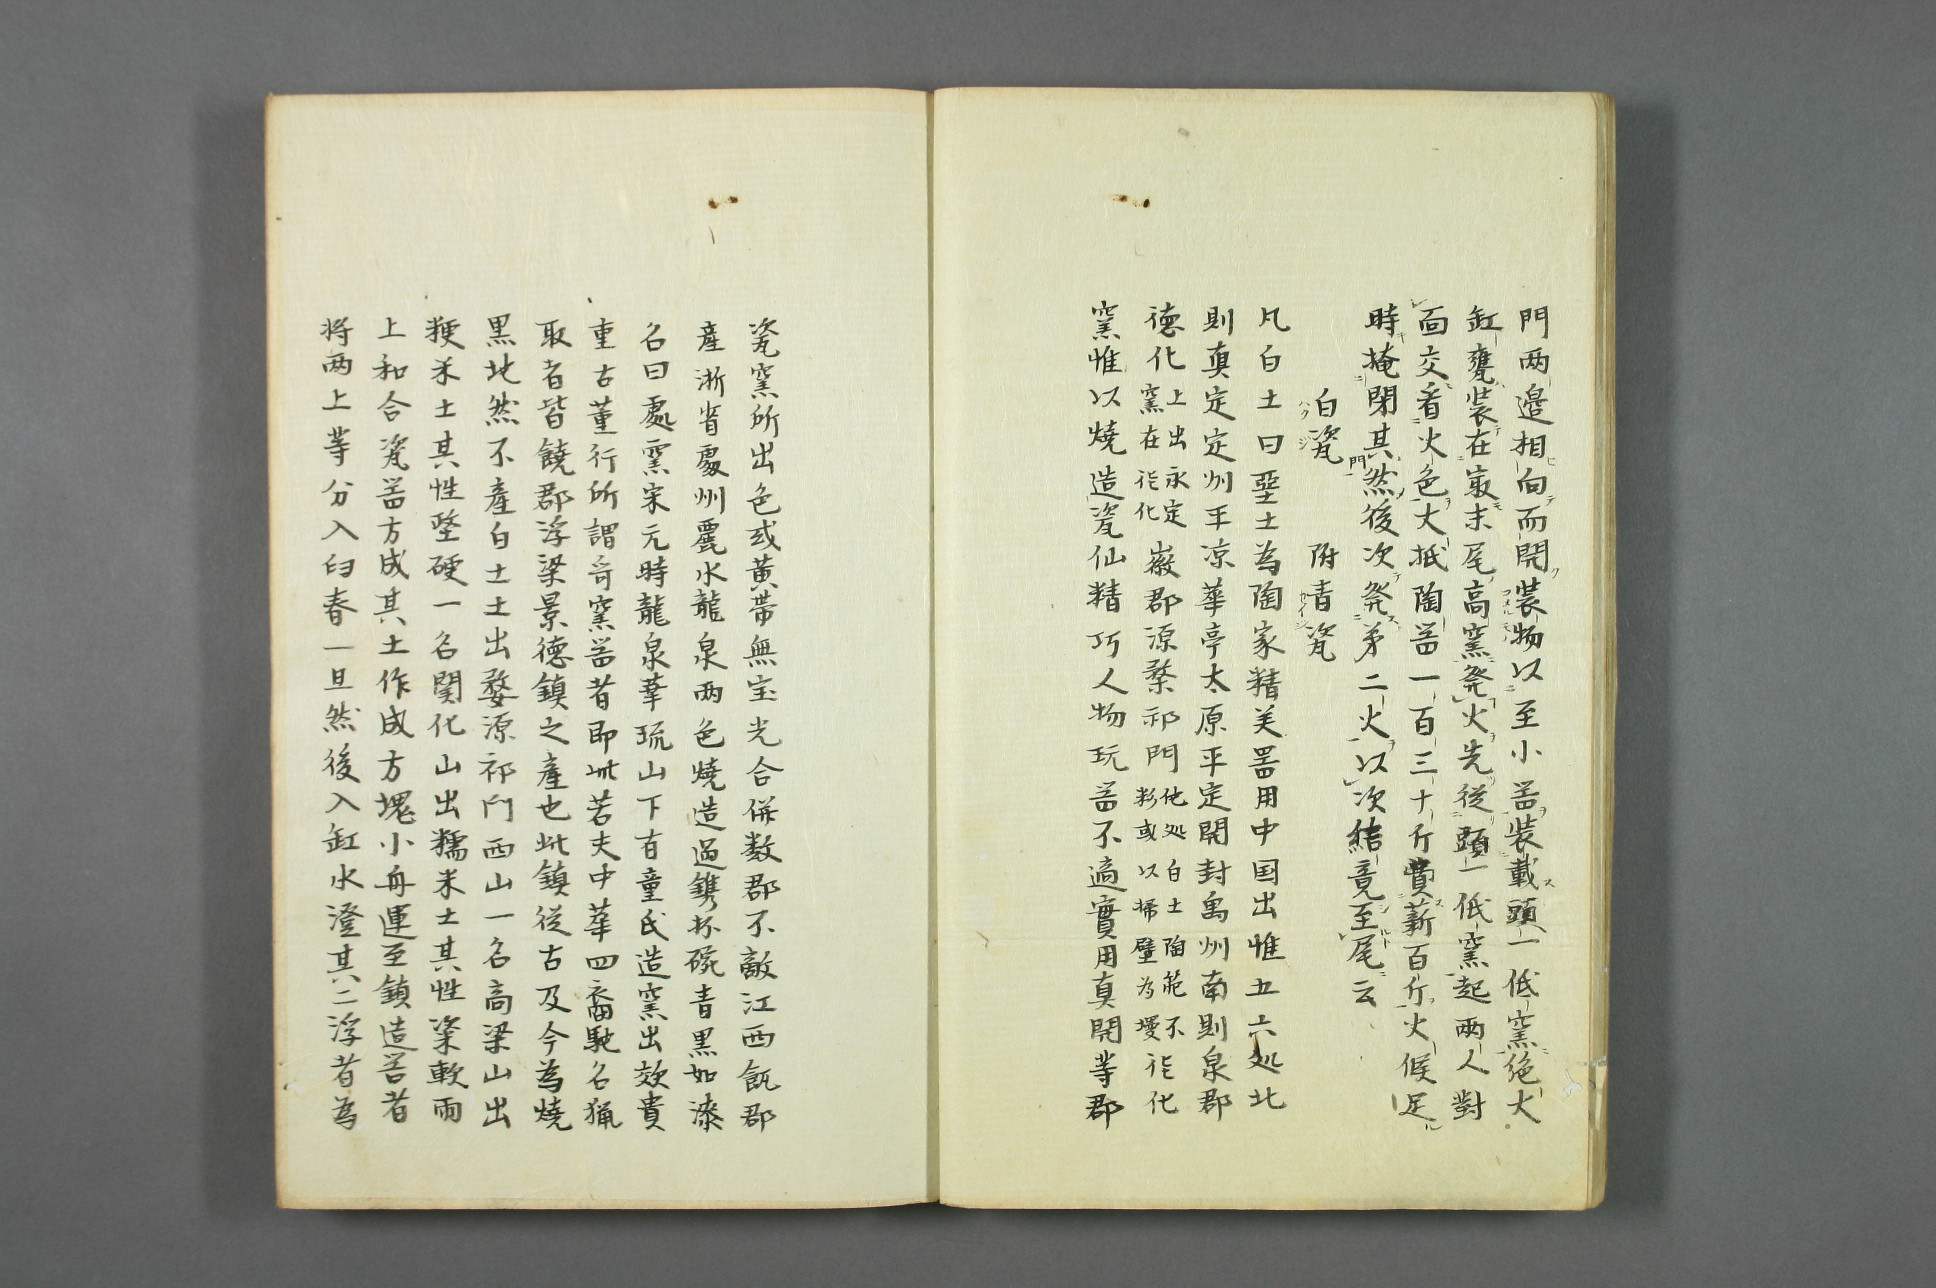 門两邉相向而開装物以至小噐装載頭一低窯絶大
缸甕装在㝡末尾高窯発火先従頭一低窯起兩人對
面交看火色大抵陶噐一百三十斤費薪百斤火候足
時掩閉其門然後次発第二火以次結竟至尾云
白瓷 附青瓷
凡白土曰堊土為陶家精美噐用中国出惟五六処北
則真定定州平凉華亭太原平定開封禹州南則泉郡
德化上出永定窯在德化徽郡源婺祁門他処白土陶範不粘或以掃壁為墁德化
窯惟以燒造瓷仙精巧人物玩噐不適實用真開等郡
瓷窯所出色或黄帯無宝光合併数郡不敵江西饒郡
產浙省處州麗水龍泉两色燒造過銹杯碗青黒如漆
名曰處窯宋元時龍泉華琉山下有童氏造窯出欵貴
重古董行所謂哥窯噐者即此若夫中華四裔馳名猟
取者皆饒郡浮梁景德鎮之產也此鎮従古及今為燒
黒地然不產白土土出婺源祁门西山一名高梁山出
粳米土其性堅硬一名開化山出糯米土其性粢軟兩
上和合瓷噐方成其土作成方塊小舟運至鎮造噐者
将两上等分入臼舂一旦然後入缸水澄其二浮者為